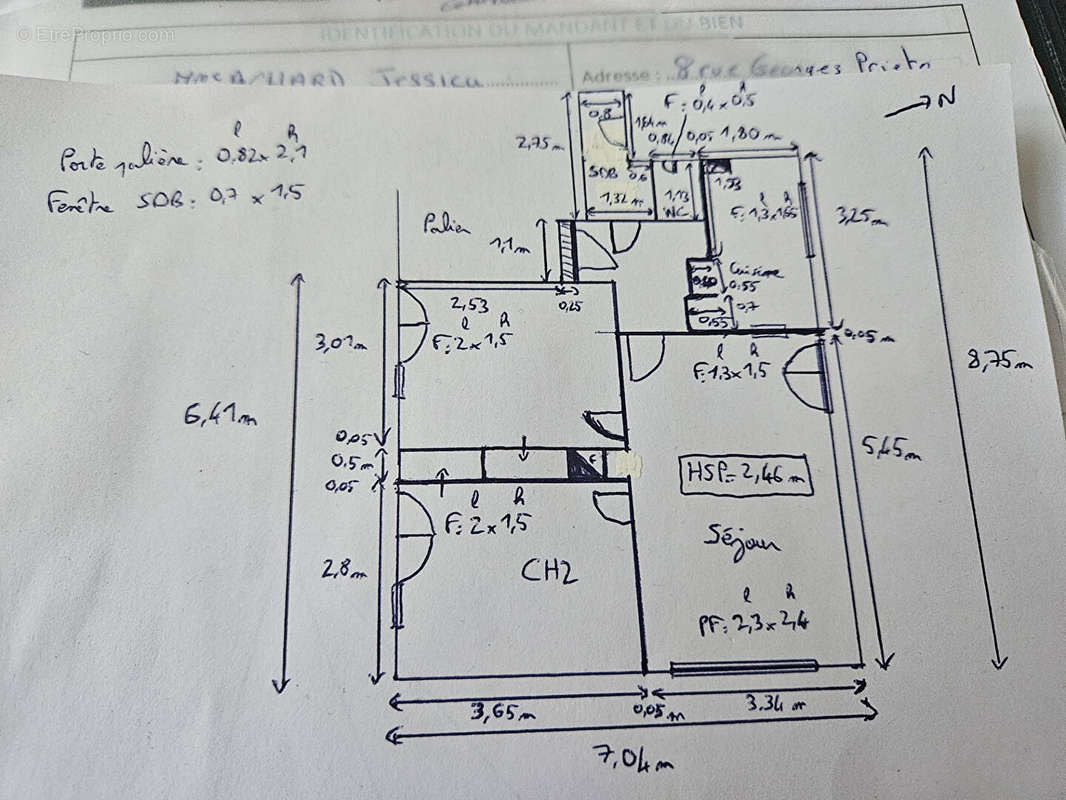 © EtreProprio.com
IDENTIFICATION DU MANDANT ET DU BIEN
Jessica
Adresse : 8 rue Georges Prieto
N
l h
Porte palière : 0,82 x 2,1
Fenêtre SDB : 0,7 x 1,5
l h
F: 0,4 x 0,5
0,8
1,64 m
0,84 0,05 1,80 m
2,75 m
SDB 0,6
1,32 m
1,13
WC
1,53
l h
F: 1,3 x 1,65
3,25 m
Palier
1,1 m
Cuisine
0,55
0,7
0,55
0,25
2,53
l h
F: 2 x 1,5
3,01 m
0,05 m
l h
F: 1,3 x 1,5
8,75 m
6,41 m
0,05
0,5 m
0,05
F
HSP = 2,46 m
5,45 m
l h
F: 2 x 1,5
CH2
2,8 m
Séjour
l h
PF: 2,3 x 2,4
3,65 m
0,05 m
3.34 m
7,04 m